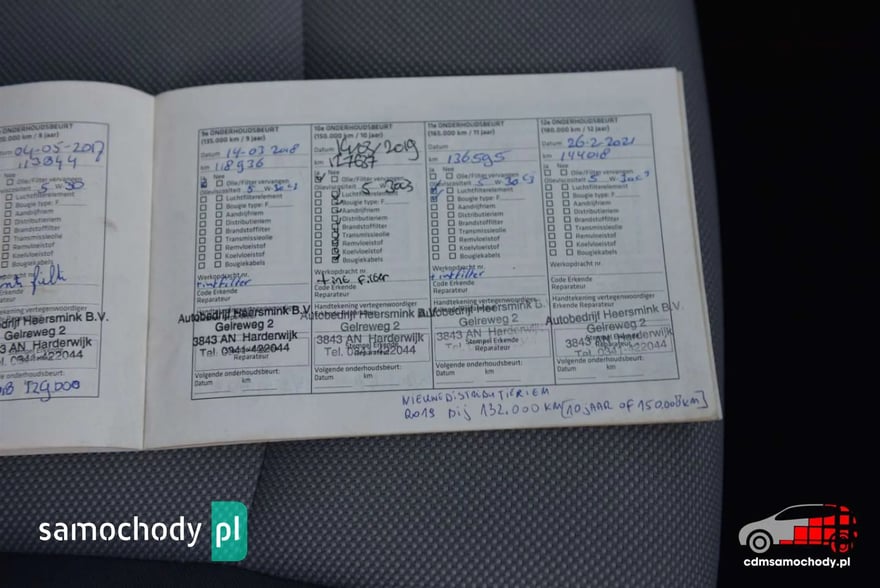 ONDERHOUDSBEURT
km / 8 jaar)
04-05-2017
Olie/Filter vervangen
Luchtfilterelement
Bougie type: F
Aandrijfriem
Distributieriem
Brandstoffilter
Transmissieolie
Remvloeistof
Koelvloeistof
Bougiekabels
Werkopdracht nr.
Heersmink B.V.
Gelreweg 2
3843 AN Harderwijk
Tel. 0341-422044
Volgende onderhoudsbeurt:
km
129.000
9e ONDERHOUDSBEURT
(135.000 km / 9 jaar)
Datum 14-03 2018
km 118936
Nee
Olie/Filter vervangen
Olieviscositeit 5 W 30 C3
Luchtfilterelement
Bougie type: F
Aandrijfriem
Distributieriem
Brandstoffilter
Transmissieolie
Remvloeistof
Koelvloeistof
Bougiekabels
Werkopdracht nr.
+ intfilter
Code Erkende
Reparateur
Autobedrijf Heersmink B.V.
Gelreweg 2
3843 AN Harderwijk
Tel. 0341-422044
Reparateur
Volgende onderhoudsbeurt:
Datum km
10e ONDERHOUDSBEURT
(150.000 km / 10 jaar)
Datum 2019
km 127687
Nee
Olie/Filter vervangen
Olieviscositeit 5 W 30C3
Luchtfilterelement
Bougie type: F
Aandrijfriem
Distributieriem
Brandstoffilter
Transmissieolie
Remvloeistof
Koelvloeistof
Bougiekabels
Werkopdracht nr.
+ int filter
Code Erkende
Reparateur
Handtekening vertegenwoordiger
Autobedrijf Heersmink B.V.
Gelreweg 2
3843 AN Harderwijk
Stempel Erkende
Tel. 0341-422044
Reparateur
Volgende onderhoudsbeurt:
Datum km
11e ONDERHOUDSBEURT
(165.000 km / 11 jaar)
Datum
km 136595
Ja Nee
Olie/Filter vervangen
Olieviscositeit 5 W 30 C3
Luchtfilterelement
Bougie type: F
Aandrijfriem
Distributieriem
Brandstoffilter
Transmissieolie
Remvloeistof
Koelvloeistof
Bougiekabels
Werkopdracht nr.
+ intfilter
Code Erkende
Reparateur
Handtekening vertegenwoordiger
Autobedrijf Heersmink B.V.
Gelreweg 2
3843 AN Harderwijk
Stempel Erkende
Reparateur
Volgende onderhoudsbeurt:
Datum km
12e ONDERHOUDSBEURT
(180.000 km / 12 jaar)
Datum 26-2-2021
km 144018
Ja Nee
Olie/Filter vervangen
Olieviscositeit 5 W 30 C3
Luchtfilterelement
Bougie type: F
Aandrijfriem
Distributieriem
Brandstoffilter
Transmissieolie
Remvloeistof
Koelvloeistof
Bougiekabels
Werkopdracht nr.
Code Erkende
Reparateur
Handtekening vertegenwoordiger
Autobedrijf Heersmink B.V.
Gelreweg 2
3843 AN Harderwijk
Tel. 0341-422044
Reparateur
Volgende onderhoudsbeurt:
Datum km
NIEUWE DISTRIBUTIERIEM
2019 bij 132.000 KM [10 JAAR OF 150.000KM]
samochody pl
cdmsamochody.pl